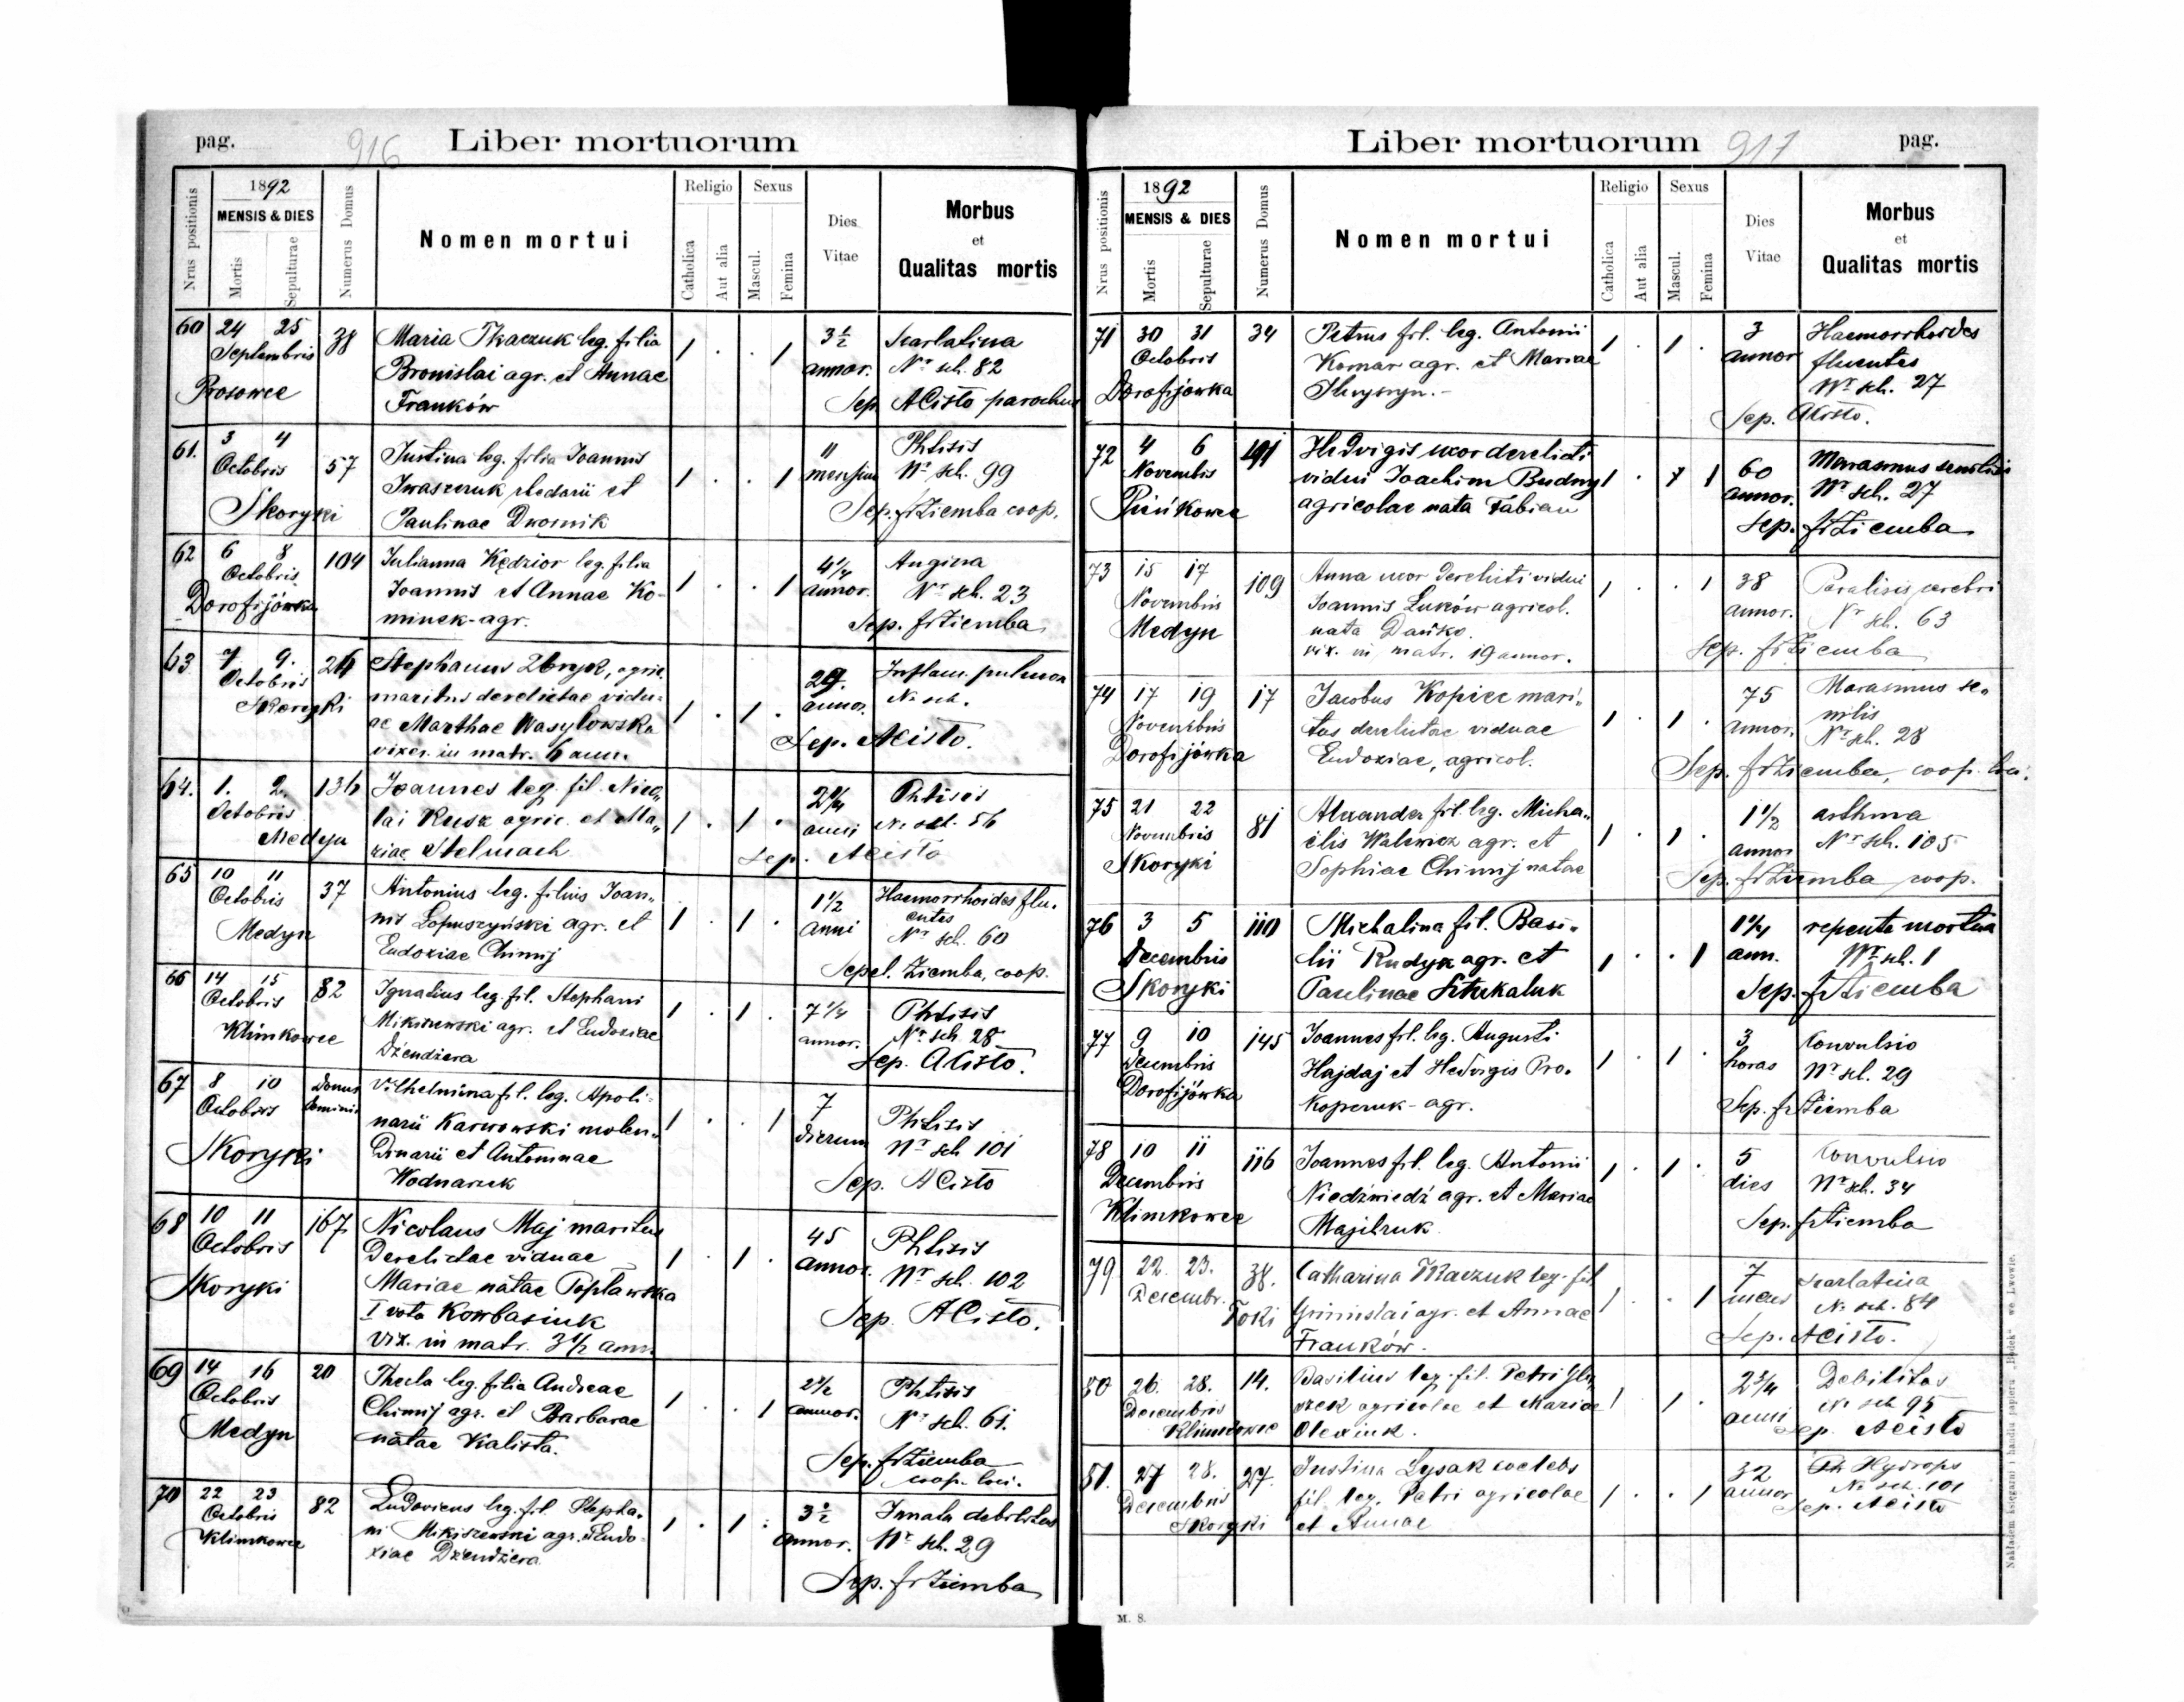 pag. 916 Liber mortuorum
Nrus positionis
1892
MENSIS & DIES
Mortis
Sepulturae
Numerus Domus
Nomen mortui
Religio
Catholica
Aut alia
Sexus
Mascul.
Femina
Dies
Vitae
Morbus
et
Qualitas mortis
60 24 25 38 Maria Tkaczuk leg. filia 1 . . 1 3½ Scarlatina
Septembris Bronislai agr. et Annae annor. Nr sch. 82
Prosowce Franków Sep. ACisło parochus
61. 3 4 57 Justina leg. filia Joannis 1 . . 1 11 Phtisis
Octobris Iwaszczuk rhedarii et mensium Nr sch. 99
Skoryki Paulinae Dwornik Sep. frZiemba coop.
62 6 8 104 Julianna Kędzior leg. filia 1 . . 1 4¼ Angina
Octobris Joannis et Annae Ko- annor. Nr sch. 23
Dorofijówka minek - agr. Sep. frZiemba
63 7 9. Stephanus Zbryk, agric. 29. Inflam. pulmon
Octobris maritus derelictae vidu- annor. Nr sch.
Skoryki ae Marthae Wasylowska 1 . 1 . Sep. ACisło.
vixer. in matr. 6 ann.
64. 1. 2. 136 Joannes leg. fil. Nico„ 2¼ Phtisis
Octobris lai Rusk agric. et Ma„ 1 . 1 . anni Nr sch. 56
Medyn riae Stelmach Sep. ACisło
65 10 11 37 Antonius leg. filius Joan„ 1½ Haemorrhoides flu.
Octobris nis Łopuszyński agr. et 1 . 1 . anni entes
Medyn Eudoxiae Chimij Nr sch. 60
Sepel. Ziemba, coop.
66 14 15 82 Ignatius leg. fil. Stephani 1 . 1 . 7¼ Phtisis
Octobris Mikiszewski agr. et Eudoxiae annor. Nr sch. 28
Klimkowce Dżendżera Sep. ACisło.
67 8 10 Domus Vilhelmina fil. leg. Apoli- 7 Phtisis
Octobris dominic narii Karwowski molen„ 1 . . 1 dierum Nr sch 101
Skoryki dinarii et Antoninae Sep. ACisło
Wodnarzek
68 10 11 167 Nicolaus Maj maritus 45 Phtisis
Octobris Derelictae viduae 1 . 1 . annor. Nr sch. 102
Skoryki Mariae natae Popławska Sep. ACisło.
I voto Kowbasiuk
vix. in matr. 3½ ann.
69 14 16 20 Thecla leg. filia Andreae 1 . . 1 2½ Phtisis
Octobris Chimij agr. et Barbarae annor. Nr sch. 61.
Medyn natae Kalista. Sep. frZiemba
coop. loci.
70 22 23 82 Ludovicus leg. fil. Stepha„ 1 . 1 . 3½ Innata debilitas
Octobris ni Mikiszewski agr. et Eudo- annor. Nr sch. 29
Klimkowce xiae Dżendżera Sep. frZiemba
Liber mortuorum 917 pag.
Nrus positionis
1892
MENSIS & DIES
Mortis
Sepulturae
Numerus Domus
Nomen mortui
Religio
Catholica
Aut alia
Sexus
Mascul.
Femina
Dies
Vitae
Morbus
et
Qualitas mortis
71 30 31 34 Petrus fil. leg. Antonii 1 . 1 . 3 Haemorrhoides
Octobris Komar agr. et Mariae annor fluentes
Dorofijówka Nr sch. 27
Sep. ACisło.
72 4 6 191 Hedvigis uxor derelicti 60 Marasmus senilis
Novembris vidui Joachim Budny 1 . 1 annor. Nr sch. 27
Pieńkowce agricolae nata Fabian Sep. frZiemba
73 15 17 109 Anna uxor derelicti vidui 1 . . 1 38 Paralisis cerebri
Novembris Joannis Łuków agricol. annor. Nr sch. 63
Medyn nata Dańko. Sep. frZiemba
vix. in matr. 19 annor.
74 17 19 17 Jacobus Kopiec mari„ 1 . 1 . 75 Marasmus se„
Novembris tus derelictae viduae annor. nilis
Dorofijówka Eudoxiae, agricol. Nr sch. 28
Sep. frZiemba, coop. loci.
75 21 22 81 Alexander fil. leg. Micha„ 1 . 1 . 1½ asthma
Novembris elis Walewicz agr. et annor Nr sch. 105
Skoryki Sophiae Chimij natae Sep. frZiemba coop.
76 3 5 110 Michalina fil. Basi„ 1¼ repente mortua
Decembris lii Rudyk agr. et 1 . . 1 ann. Nr sch. 1
Skoryki Paulinae Sztukaluk Sep. frZiemba
77 9 10 145 Joannes fil. leg. Augusti 1 . 1 . 3 Convulsio
Decembris Hajdaj et Hedvigis Pro. horas Nr sch. 29
Dorofijówka koperuk - agr. Sep. frZiemba
78 10 11 116 Joannes fil. leg. Antonii 1 . 1 . 5 Convulsio
Decembris Niedźwiedź agr. et Mariae dies Nr sch. 34
Klimkowce Majdruk Sep. frZiemba
79 22. 23. 38. Catharina Tkaczuk leg. fil 7 Scarlatina
Decembr. Toki agr. et Annae 1 . . 1 Nr sch. 84
Franków. Sep. ACisło.
80 26. 28. 14. Basilius leg. fil. Petri 2¾ Debilitas
Decembris agricolae et Mariae 1 . 1 . anni Nr sch 95
Klimkowce Olexiuk. Sep. ACisło
81. 27 28. 27. Justina Łysak coelebs 32 Hydrops
Decembris fil. leg. Petri agricolae 1 . . 1 annor Nr sch. 101
Skoryki et Annae Sep. ACisło
M. S.
Nakładem księgarni i handlu papieru „Bódek" we Lwowie.